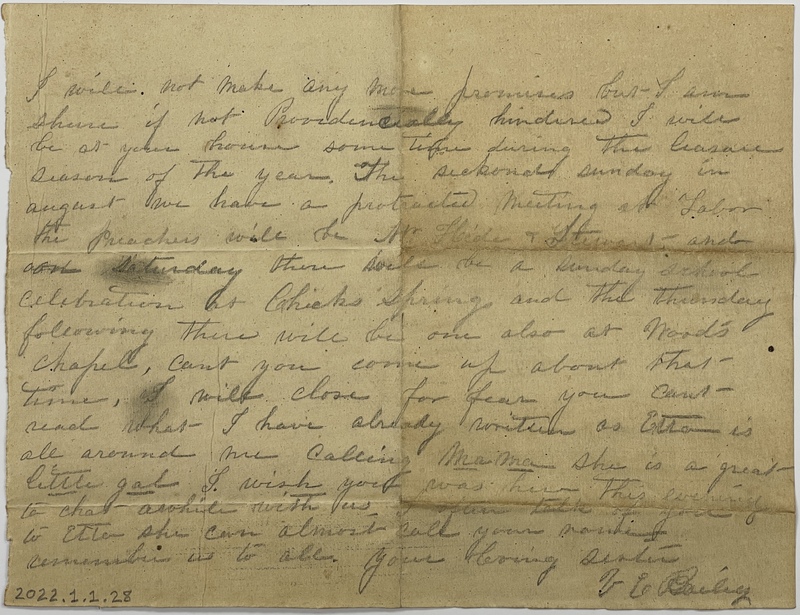 I will not make any more promises but I am
shure if not Providencially hindered I will
be at your house some time during the leasure
season of the year. The seckond sunday in
august we have a protracted meeting at Labor
the preachers will be Mr Hide & Stewart and
on saturday there will be a sunday school
celebration at Chicks Spring and the thursday
following there will be one also at Wood's
chapel, cant you come up about that
time, I will close for fear you cant
read what I have already written as Etta is
all around me calling Ma Ma she is a great
little gal I wish you was here this evening
to chat awhile with us I often talk of you
to Etta she can almost call your name
remember us to all. Your loving sister
V E Bailey
2022.1.1.28